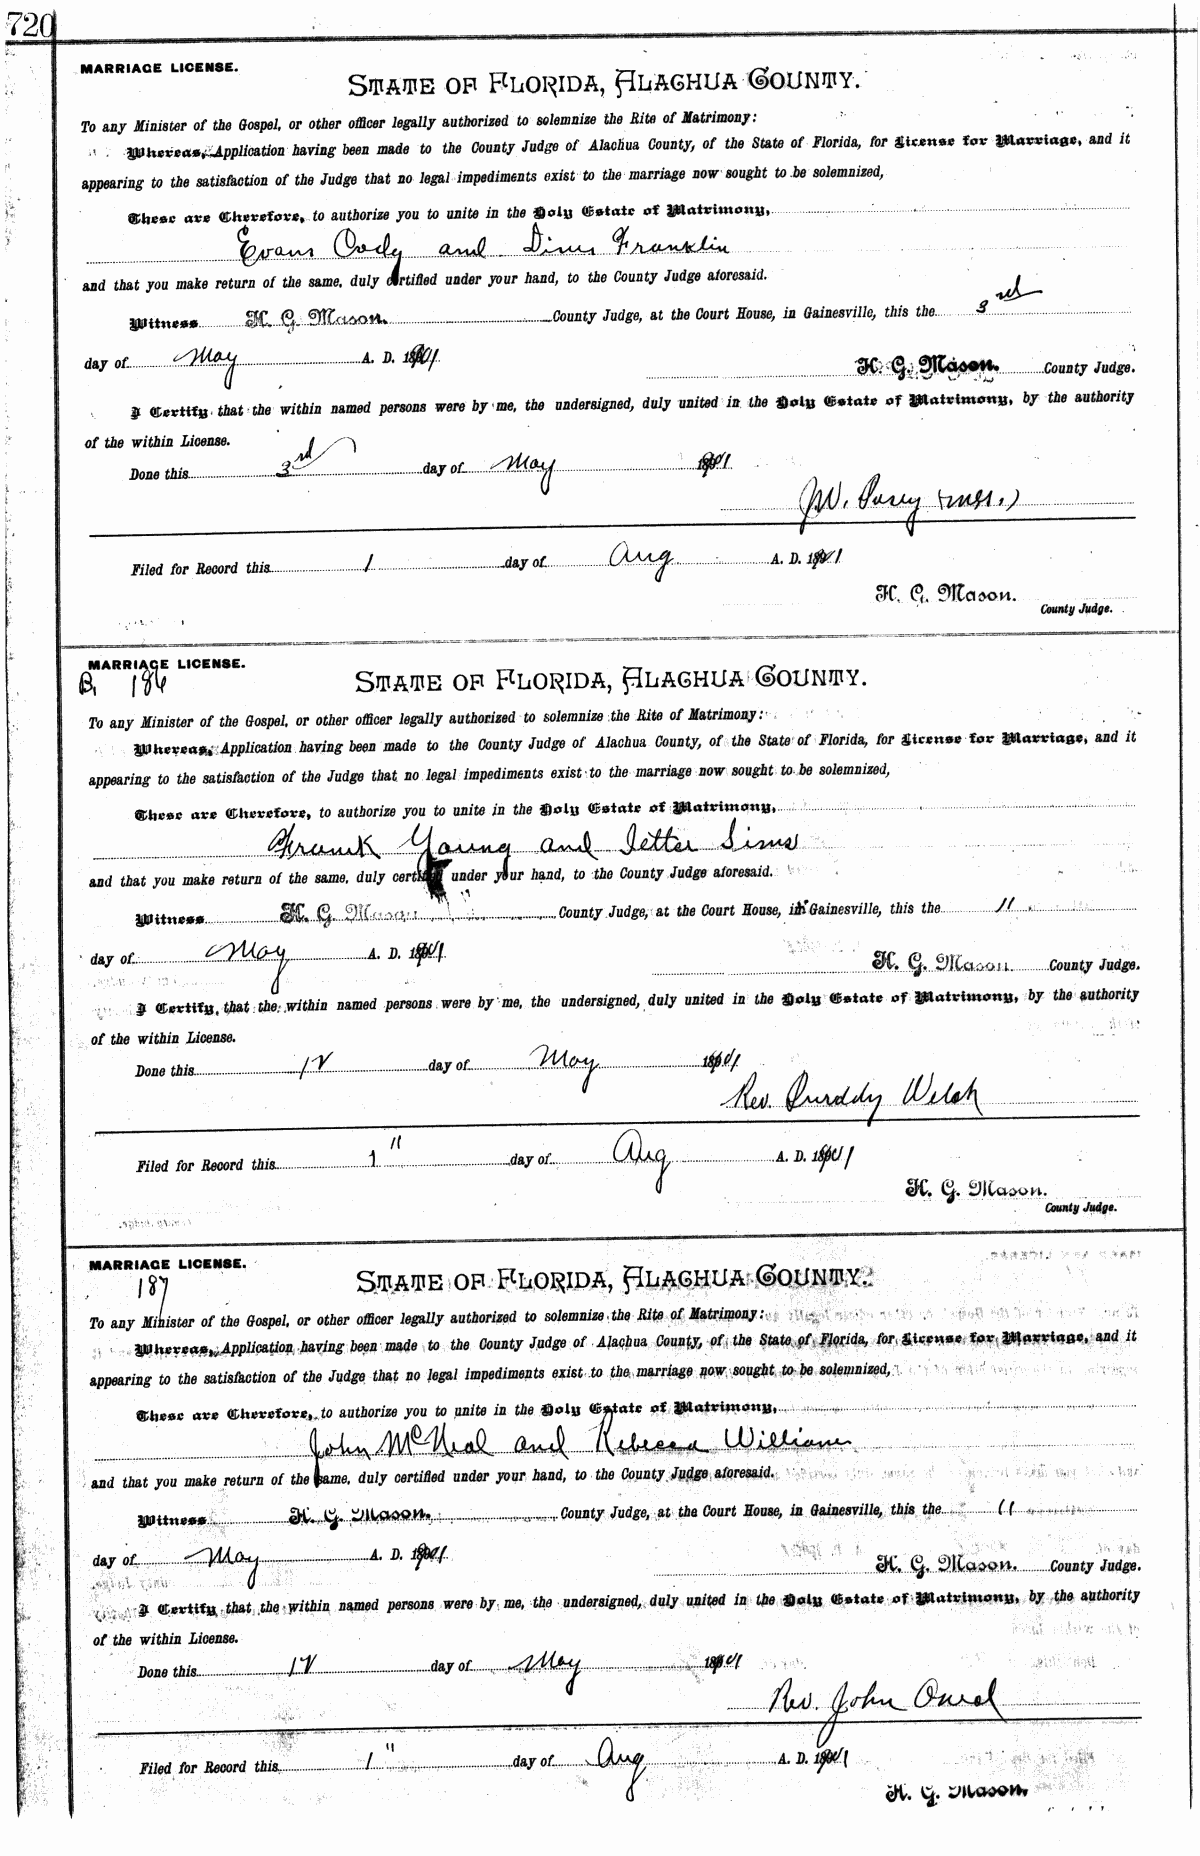 720
MARRIAGE LICENSE.
STATE OF FLORIDA, ALACHUA COUNTY.
To any Minister of the Gospel, or other officer legally authorized to solemnize the Rite of Matrimony:
Whereas, Application having been made to the County Judge of Alachua County, of the State of Florida, for License for Marriage, and it
appearing to the satisfaction of the Judge that no legal impediments exist to the marriage now sought to be solemnized,
These are Therefore, to authorize you to unite in the Holy Estate of Matrimony,
Evans Cody and Franklin
and that you make return of the same, duly certified under your hand, to the County Judge aforesaid.
Witness H. G. Mason. County Judge, at the Court House, in Gainesville, this the 3rd
day of May A. D. 1901
H. G. Mason. County Judge.
I Certify that the within named persons were by me, the undersigned, duly united in the Holy Estate of Matrimony, by the authority
of the within License.
Done this 3rd day of May 1901
J.W. Posey
Filed for Record this 1 day of Aug A. D. 1901
H. G. Mason.
County Judge.
MARRIAGE LICENSE.
B. 186
STATE OF FLORIDA, ALACHUA COUNTY.
To any Minister of the Gospel, or other officer legally authorized to solemnize the Rite of Matrimony:
Whereas, Application having been made to the County Judge of Alachua County, of the State of Florida, for License for Marriage, and it
appearing to the satisfaction of the Judge that no legal impediments exist to the marriage now sought to be solemnized,
These are Therefore, to authorize you to unite in the Holy Estate of Matrimony,
Frank Young and Jetter Sims
and that you make return of the same, duly certified under your hand, to the County Judge aforesaid.
Witness H. G. Mason County Judge, at the Court House, in Gainesville, this the 11
day of May A. D. 1901
H. G. Mason County Judge.
I Certify, that the within named persons were by me, the undersigned, duly united in the Holy Estate of Matrimony, by the authority
of the within License.
Done this 12 day of May 1901
Rev. Purddy Welsh
Filed for Record this 1" day of Aug A. D. 1901
H. G. Mason.
County Judge.
MARRIAGE LICENSE.
187
STATE OF FLORIDA, ALACHUA COUNTY.
To any Minister of the Gospel, or other officer legally authorized to solemnize the Rite of Matrimony:
Whereas, Application having been made to the County Judge of Alachua County, of the State of Florida, for License for Marriage, and it
appearing to the satisfaction of the Judge that no legal impediments exist to the marriage now sought to be solemnized,
These are Therefore, to authorize you to unite in the Holy Estate of Matrimony,
John McNeal and Rebecca Williams
and that you make return of the same, duly certified under your hand, to the County Judge aforesaid.
Witness H. G. Mason. County Judge, at the Court House, in Gainesville, this the 11
day of May A. D. 1901
H. G. Mason. County Judge.
I Certify that the within named persons were by me, the undersigned, duly united in the Holy Estate of Matrimony, by the authority
of the within License.
Done this 12 day of May 1901
Rev. John Oneal
Filed for Record this 1" day of Aug A. D. 1901
H. G. Mason.